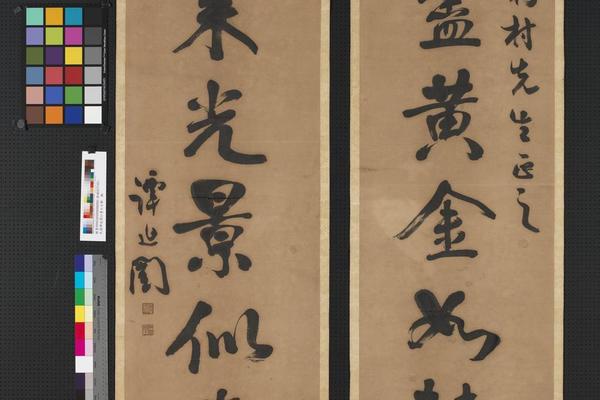 村先生正之
盡黃金如
光景似
譚延闓